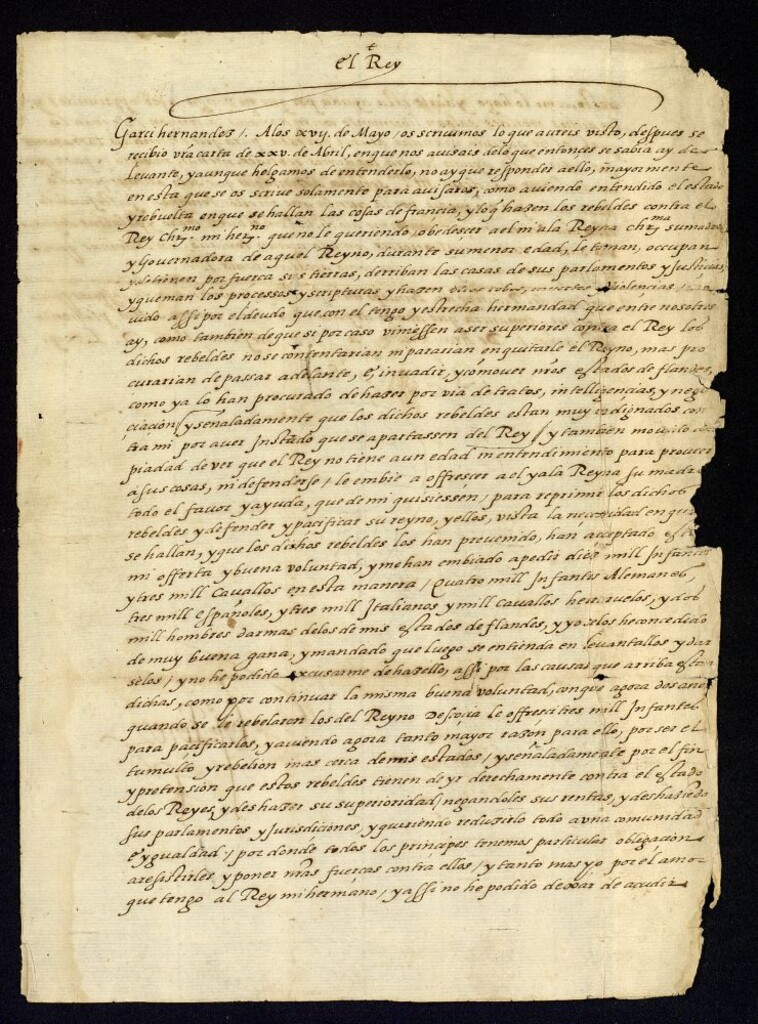 el Rey
Garcihernandez /. Alos xvij. de Mayo / os scriuimos lo que aureis visto, despues se
recibio vr̄a carta de xxv. de Abril, en que nos auisais delo que entonces se sabia ay de
Leuante, y aunque holgamos de entenderlo, no ay que responder a ello, mayormente
en esta que se os scriue solamente para auisaros, como auiendo entendido el estado
y rebuelta en que se hallan las cosas de francia, y lo q̄ hazen los rebeldes contra el
Rey Chr̄mo. mi her.no que no le queriendo obedesçer a el ni ala Reyna chr̄ma su madre
y Gouernadora de aquel Reyno, durante su menor edad, le toman, occupan
y detienen por fuerça sus tierras, derriban las casas de sus parlamentos y Justicias,
y queman los processos y scripturas y hazen otros robos, muertes y violencias /
uido assi por el deudo que con el tengo y estrecha hermandad que entre nosotros
ay, como tambien de que si por caso viniessen a ser superiores contra el Rey los
dichos rebeldes no se contentarian ni pararian en quitarle el Reyno, mas pro
curarian de passar adelante, e inuadir, y comouer nr̄os estados de flandes,
como ya lo han procurado de hazer por via de tratos, intelligencias, y nego
çiaçion / y señaladamente que los dichos rebeldes estan muy indignados con
tra mi por auer Instado que se apartassen del Rey / y tambien mouido de
piadad de ver que el Rey no tiene aun edad ni entendimiento para proueer
a sus cosas, ni defenderse / le embie a offrescer a el y ala Reyna su madre
todo el fauor y ayuda, que de mi quisiessen / para reprimir los dichos
rebeldes y defender y paçificar su reyno, y ellos, vista la neçesidad en que
se hallan, y que los dichos rebeldes los han preuenido, han acceptado esta
mi offerta y buena voluntad, y me han embiado a pedir diez mill Infantes
y tres mill Cauallos en esta manera / Quatro mill Infantes Alemanes,
tres mill españoles, y tres mill Italianos y mill cauallos herreruelos, y dos
mill hombres darmas delos de mis estados de flandes, y yo selos he concedido
de muy buena gana, y mandado que luego se entienda en leuantallos y dar
selos / y no he podido excusarme de hazello, assi por las causas que arriba estan
dichas, como por continuar la misma buena voluntad, con que agora dos años
quando se le rebelaron los del Reyno Descoçia le offresci tres mill Infantes
para paçificarlos, y auiendo agora tanto mayor razon para ello, por ser el
tumulto y rebelion mas cerca de mis estados / y señaladamente por el fin
y pretension que estos rebeldes tienen de yr derechamente contra el estado
delos Reyes, y deshazer su superioridad, negandoles sus rentas, y deshaziendo
sus parlamentos y Jurisdiciones, y queriendo reduzirlo todo a vna comunidad
e ygualdad / por donde todos los prinçipes tenemos particular obligaçion
a resistirles y poner nr̄as fuerças contra ellos / y tanto mas yo por el amor
que tengo al Rey mi hermano / y assi no he podido dexar de acudir